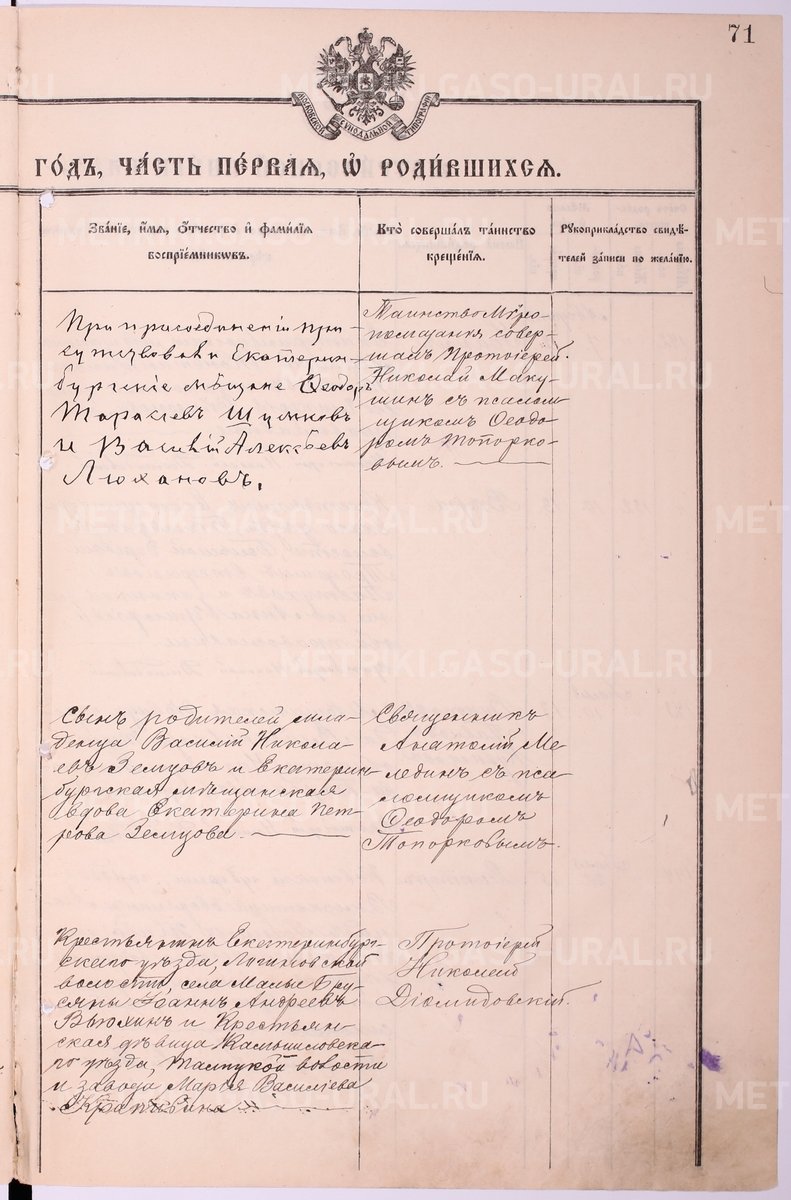 71
МОСКОВСКОЙ СѴНОДАЛЬНОЙ ТИПОГРАФІИ
ГОДЪ, ЧАСТЬ ПЕРВАЯ, Ѿ РОДИВШИХСЯ.
Званіе, имя, отчество и фамилія
воспріемниковъ.
Кто совершалъ таинство
крещенія.
Рукоприкладство свидѣ-
телей записи по желанію.
При присоединеніи при-
сутствовали Екатерин-
бургскіе мѣщане Ѳеодоръ
Тарасіевъ Шумковъ
и Василій Алексѣевъ
Люхановъ.
Таинство Мѵро-
помазанія совер-
шалъ Протоіерей
Николай Маку-
шинъ съ псалом-
щикомъ Ѳеодо-
ромъ Топорко-
вымъ.
сынъ родителей мла-
денца Василій Никола-
евъ Земцовъ и Екатерин-
бургская мѣщанская
вдова Екатерина Пет-
рова Земцова.
Священникъ
Анатолій Ме-
лединъ съ пса-
ломщикомъ
Ѳеодоромъ
Топорковымъ.
Крестьянинъ Екатеринбург-
скаго уѣзда, Логиновской
волости, села Малые Бру-
сяны Іоаннъ Андреевъ
Вьюхинъ и Крестьян-
ская дѣвица Камышловска-
го уѣзда, Талицкой волости
и завода Марія Васильева
Крапивина
Протоіерей
Николай
Діомидовскій.
METRIKI.GASO-URAL.RU